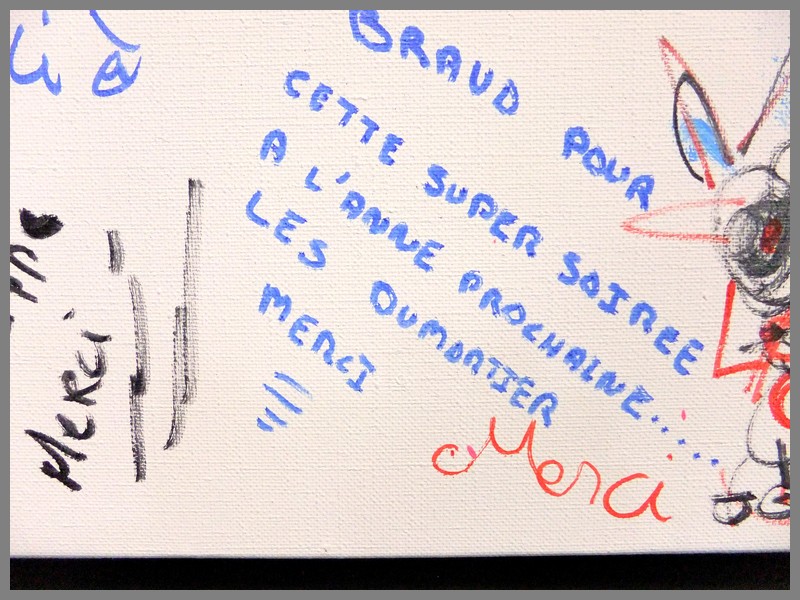 BRAUD POUR
CETTE SUPER SOIREE
A L'ANNE PROCHAINE......
LES DUMORTIER
MERCI
Merci
Merci